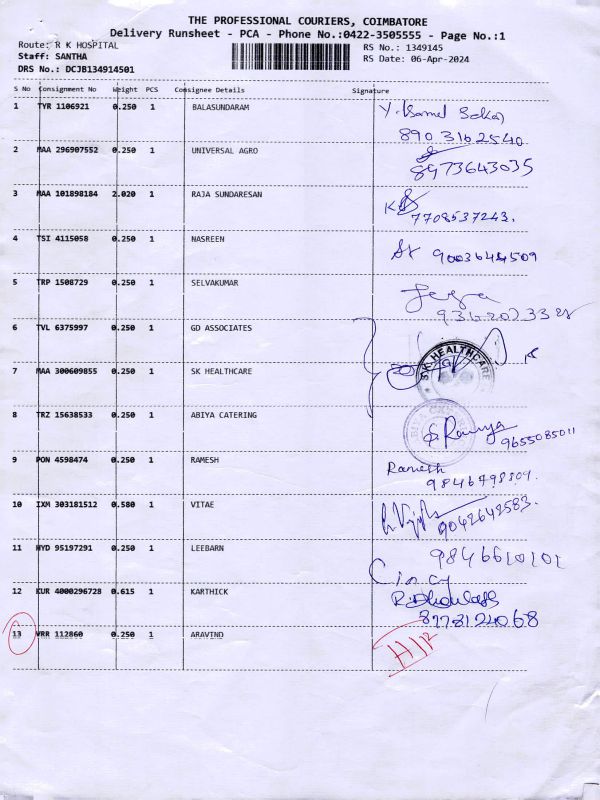 THE PROFESSIONAL COURIERS, COIMBATORE
Delivery Runsheet - PCA - Phone No.:0422-3505555 - Page No.:1
Route: R K HOSPITAL
Staff: SANTHA
DRS No.: DCJB134914501
RS No.: 1349145
RS Date: 06-Apr-2024
S No Consignment No Weight PCS Consignee Details Signature
1 TYR 1106921 0.250 1 BALASUNDARAM
8903162540
2 MAA 296907552 0.250 1 UNIVERSAL AGRO
8973643035
3 MAA 101898184 2.020 1 RAJA SUNDARESAN
7708537243.
4 TSI 4115058 0.250 1 NASREEN
9003644509
5 TRP 1508729 0.250 1 SELVAKUMAR
6 TVL 6375997 0.250 1 GD ASSOCIATES
7 MAA 300609855 0.250 1 SK HEALTHCARE
HEALTHCARE
8 TRZ 15638533 0.250 1 ABIYA CATERING
Ramya 9655085011
9 PON 4598474 0.250 1 RAMESH Ramesh
10 IXM 303181512 0.580 1 VITAE
9042642583.
11 HYD 95197291 0.250 1 LEEBARN
Cincy
12 KUR 4000296728 0.615 1 KARTHICK
8778124068
13 VRR 112860 0.250 1 ARAVIND